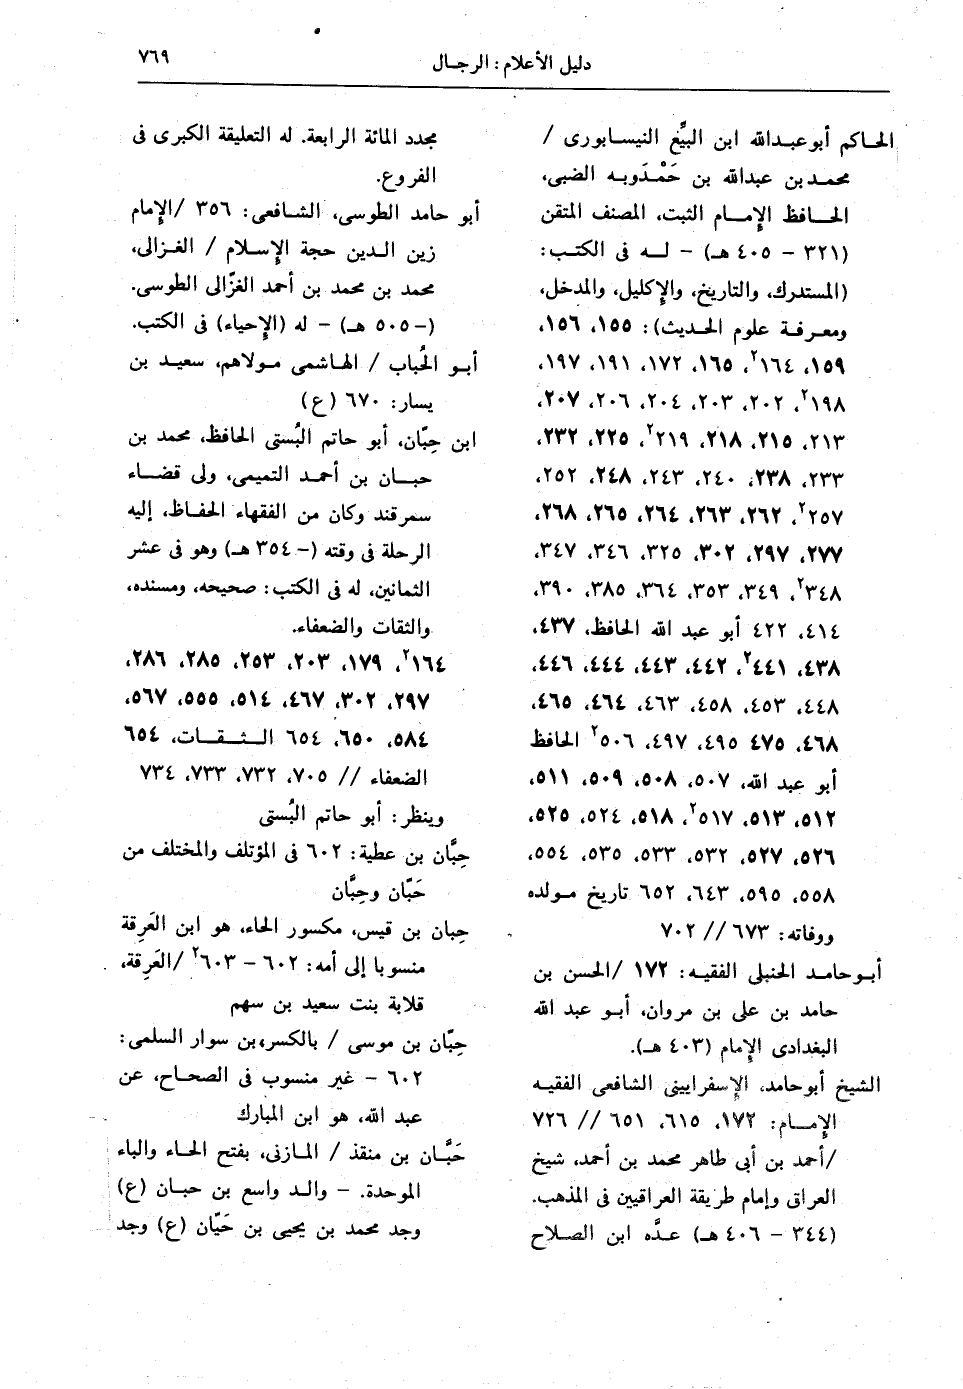 دليل الأعلام: الرجال
٧٦٩
الحاكم أبو عبدالله ابن البيِّع النيسابورى /
محمد بن عبدالله بن حَمْدَويه الضبى،
الحافظ الإمام الثبت، المصنف المتقن
(٣٢١ - ٤٠٥ هـ) - له فى الكتب:
(المستدرك، والتاريخ، والإكليل، والمدخل،
ومعرفة علوم الحديث): ١٥٥، ١٥٦،
١٥٩، ١٦٤٢، ١٦٥، ١٧٢، ١٩١، ١٩٧،
١٩٨٢، ٢٠٢، ٢٠٣، ٢٠٤، ٢٠٦، ٢٠٧،
٢١٣، ٢١٥، ٢١٨، ٢١٩٢، ٢٢٥، ٢٣٢،
٢٣٣، ٢٣٨، ٢٤٠، ٢٤٣، ٢٤٨، ٢٥٢،
٢٥٧٢، ٢٦٢، ٢٦٣، ٢٦٤، ٢٦٥، ٢٦٨،
٢٧٧، ٢٩٧، ٣٠٢، ٣٢٥، ٣٤٦، ٣٤٧،
٣٤٨٢، ٣٤٩، ٣٥٣، ٣٦٤، ٣٨٥، ٣٩٠،
٤١٤، ٤٢٢ أبو عبد الله الحافظ، ٤٣٧،
٤٣٨، ٤٤١٢، ٤٤٢، ٤٤٣، ٤٤٤، ٤٤٦،
٤٤٨، ٤٥٣، ٤٥٨، ٤٦٣، ٤٦٤، ٤٦٥،
٤٦٨، ٤٧٥ ٤٩٥، ٤٩٧، ٥٠٦٢ الحافظ
أبو عبد الله، ٥٠٧، ٥٠٨، ٥٠٩، ٥١١،
٥١٢، ٥١٣، ٥١٧٢، ٥١٨، ٥٢٤، ٥٢٥،
٥٢٦، ٥٢٧، ٥٣٢، ٥٣٣، ٥٣٥، ٥٥٤،
٥٥٨، ٥٩٥، ٦٤٣، ٦٥٢ تاريخ مولده
ووفاته: ٦٧٣ // ٧٠٢
أبو حامد الحنبلى الفقيه: ١٧٢ /الحسن بن
حامد بن على بن مروان، أبو عبد الله
البغدادى الإمام (٤٠٣ هـ).
الشيخ أبو حامد، الإسفرايينى الشافعى الفقيه
الإمام: ١٧٢، ٦١٥، ٦٥١ // ٧٢٦
/أحمد بن أبى طاهر محمد بن أحمد، شيخ
العراق وإمام طريقة العراقيين فى المذهب.
(٣٤٤ - ٤٠٦ هـ) عدَّه ابن الصلاح
مجدد المائة الرابعة. له التعليقة الكبرى فى
الفروع.
أبو حامد الطوسى، الشافعى: ٣٥٦ /الإمام
زين الدين حجة الإسلام / الغزالى،
محمد بن محمد بن أحمد الغزّالى الطوسى.
(- ٥٠٥ هـ) - له (الإحياء) فى الكتب.
أبو الحُباب / الهاشمى مولاهم، سعيد بن
يسار: ٦٧٠ (ع)
ابن حِبّان، أبو حاتم البُستى الحافظ، محمد بن
حبان بن أحمد التميمى، ولى قضاء
سمرقند وكان من الفقهاء الحفاظ، إليه
الرحلة فى وقته (- ٣٥٤ هـ) وهو فى عشر
الثمانين، له فى الكتب: صحيحه، ومسنده،
والثقات والضعفاء.
١٦٤٢، ١٧٩، ٢٠٣، ٢٥٣، ٢٨٥، ٢٨٦،
٢٩٧، ٣٠٢، ٤٦٧، ٥١٤، ٥٥٥، ٥٦٧،
٥٨٤، ٦٥٠، ٦٥٤ الثقات، ٦٥٤
الضعفاء // ٧٠٥، ٧٣٢، ٧٣٣، ٧٣٤
وينظر: أبو حاتم البُستى
حِبَّان بن عطية: ٦٠٢ فى المؤتلف والمختلف من
حَبّان وحِبَّان
حِبان بن قيس، مكسور الحاء، هو ابن العَرِقة
منسوبا إلى أمه: ٦٠٢ - ٦٠٣٢ /العَرِقة،
قلابة بنت سعيد بن سهم
حِبّان بن موسى / بالكسر،بن سوار السلمى:
٦٠٢ - غير منسوب فى الصحاح، عن
عبد الله، هو ابن المبارك
حَبَّان بن منقذ / المازنى، بفتح الحاء والباء
الموحدة. - والد واسع بن حبان (ع)
وجد محمد بن يحيى بن حَبّان (ع) وجد